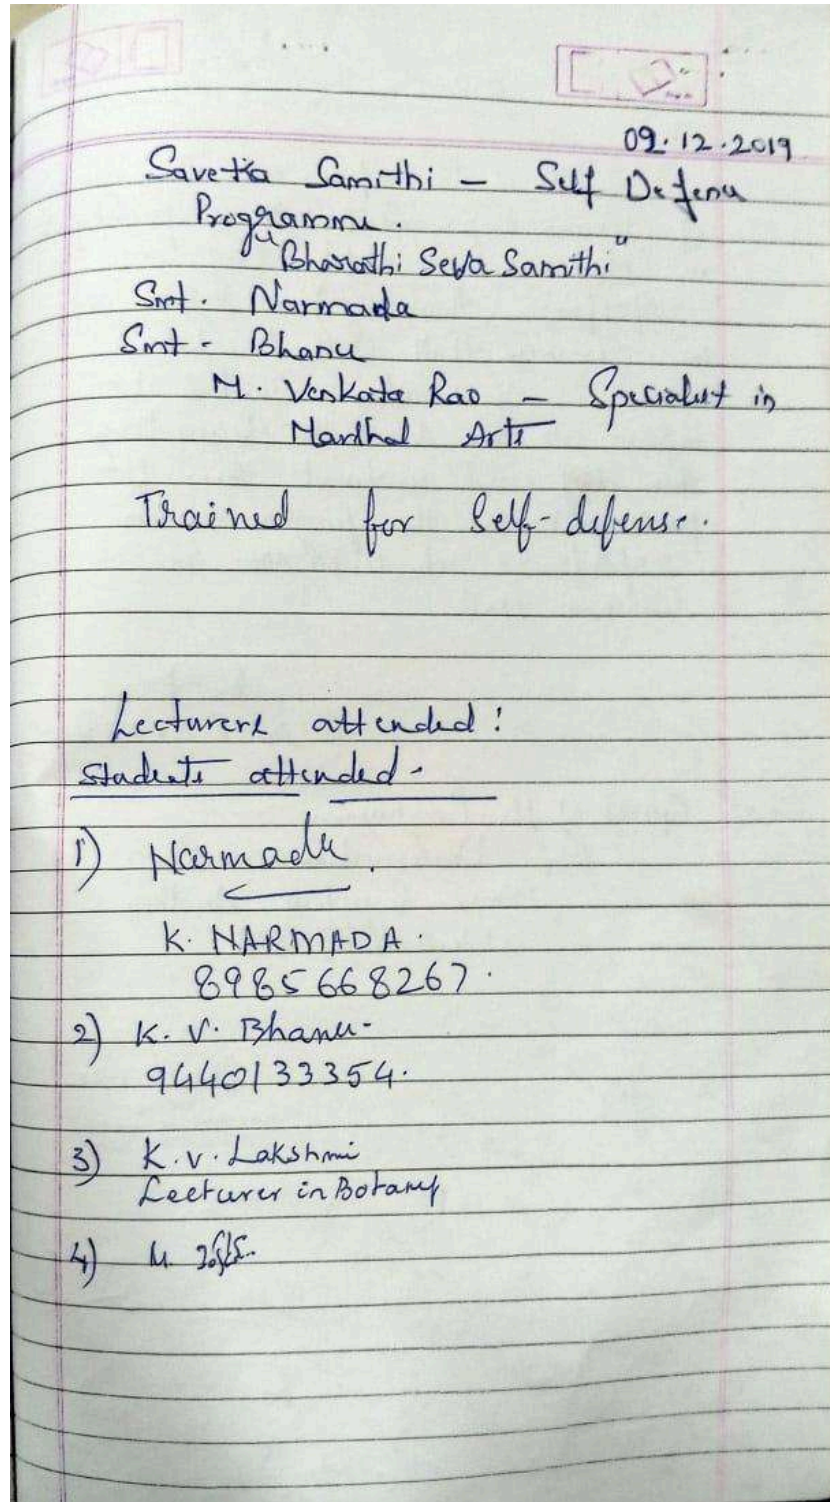 09.12.2019
Samithi - Self Defense
Programme.
"Bharathi Seva Samithi"
Smt. Narmada
Smt - Bhanu
M. Venkata Rao - Specialist in
Marthal Arts
Trained for Self-defense.
Lecturers attended:
Students attended-
1) Narmada.
K. NARMADA.
8985668267.
2) K. V. Bhanu-
9440133354.
3) K. V. Lakshmi
Lecturer in Botany
4) M.